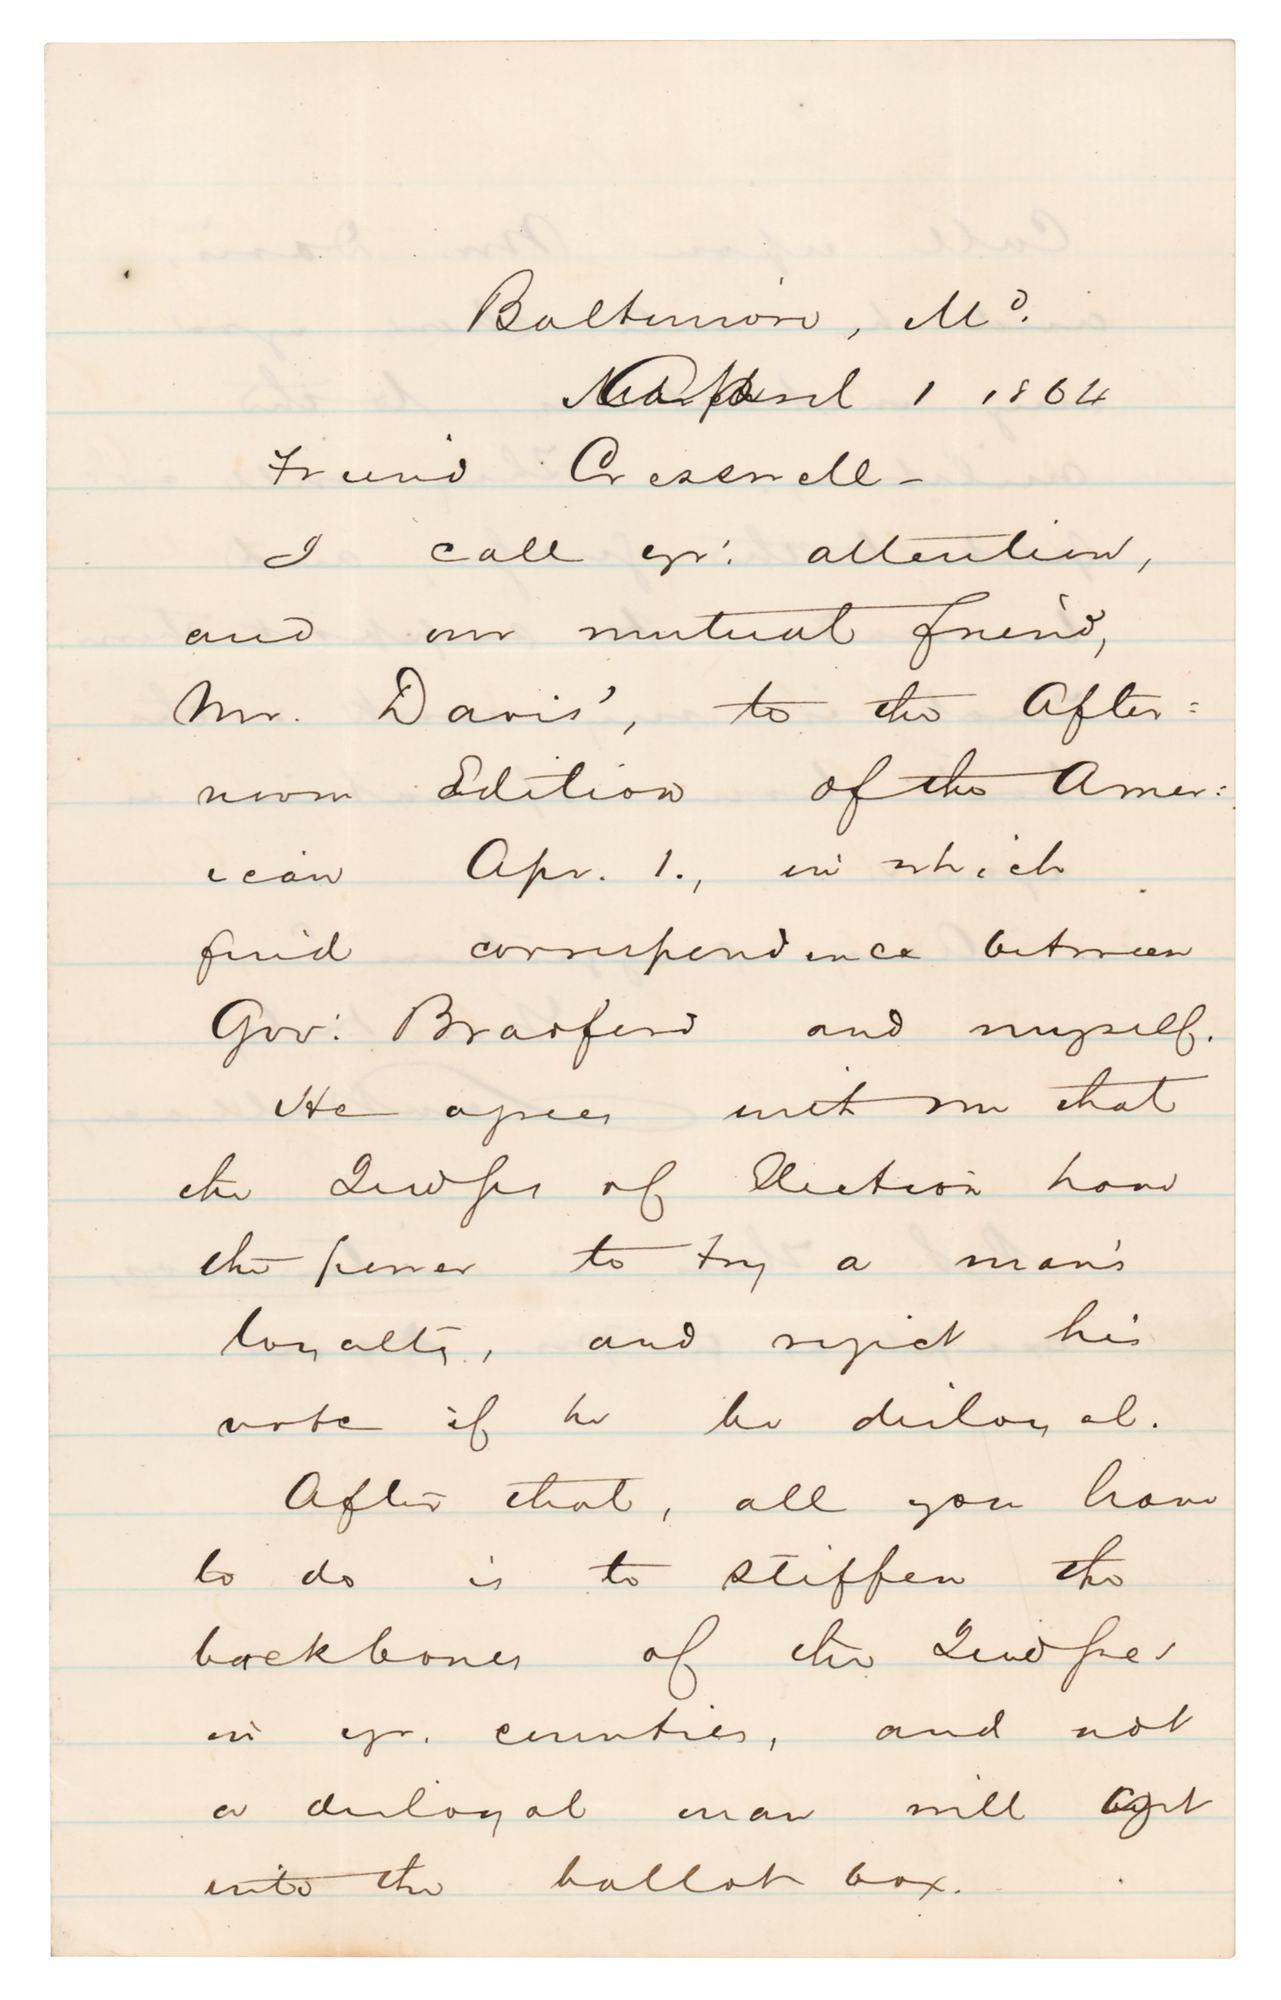 Baltimore, Md.
April 1 1864
Friend Creswell -
I call yr. attention,
and our mutual friend,
Mr. Davis', to the After=
noon Edition of the Amer=
ican Apr. 1., in which
find correspondence between
Gov. Bradford and myself.
He agrees with me that
the Judges of Election have
the power to try a man's
loyalty, and reject his
vote if he be disloyal.
After that, all you have
to do is to stiffen the
backbones of the Judges
in yr. counties, and not
a disloyal man will get
into the ballot box.